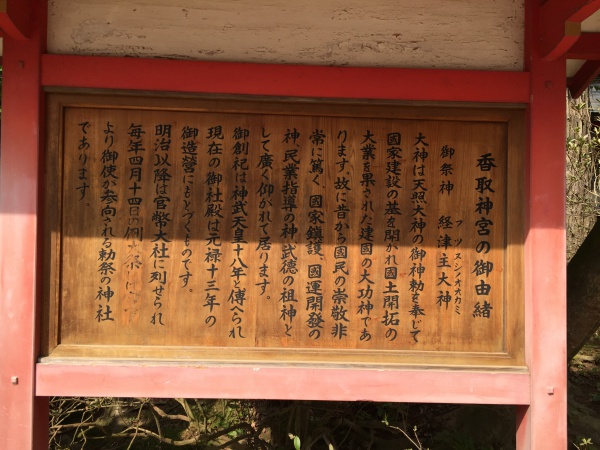 香取神宮の御由緒
御祭神 経津主大神
フツヌシノオオカミ
大神は天照大神の御神勅を奉じて
國家建設の基を開かれ國土開拓の
大業を果された建国の大功神であ
ります、故に昔から国民の崇敬非
常に篤く、國家鎮護、國運開發の
神、民業指導の神、武徳の祖神と
して廣く仰がれて居ります。
御創祀は神武天皇十八年と傳へられ
現在の御社殿は元禄十三年の
御造營にもとづくものです。
明治以降は官幣大社に列せられ
毎年四月十四日の例大祭には
より御使が参向される勅祭の神社
であります。